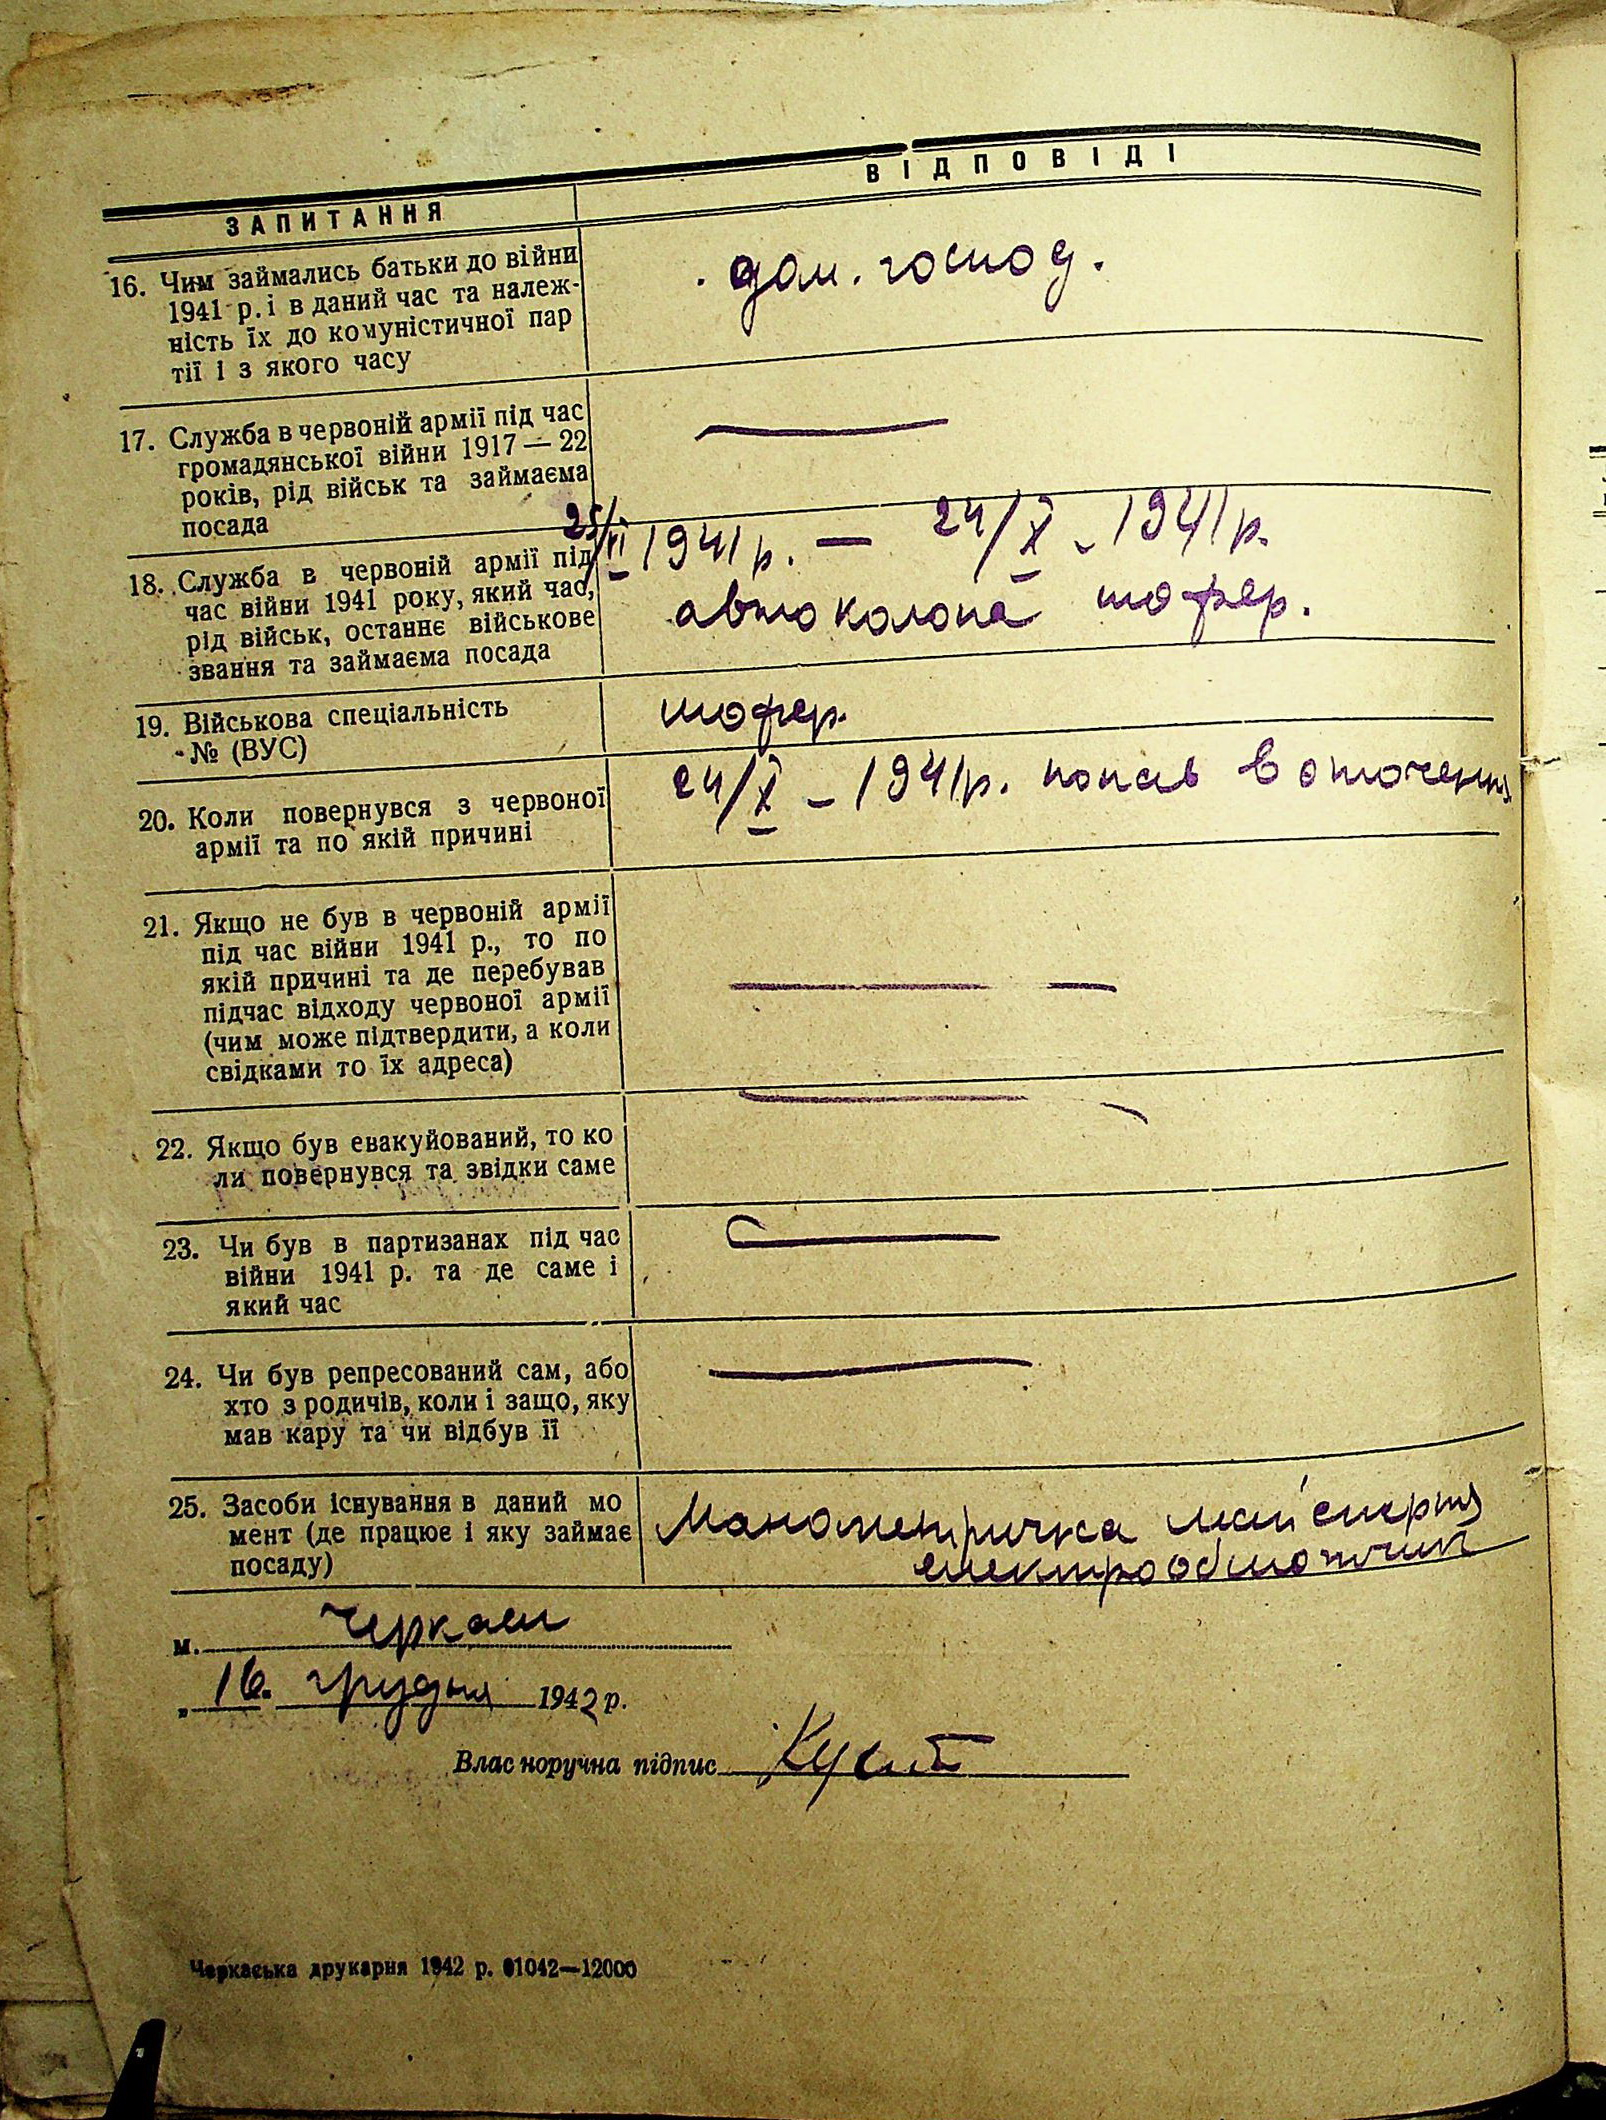 ЗАПИТАННЯ
ВІДПОВІДІ
16. Чим займались батьки до війни
1941 р. і в даний час та належ-
ність їх до комуністичної пар
тії і з якого часу
дом. господ.
17. Служба в червоній армії під час
громадянської війни 1917 — 22
років, рід військ та займаєма
посада
18. Служба в червоній армії під
час війни 1941 року, який час,
рід військ, останнє військове
звання та займаєма посада
25/VI 1941 р. — 24/X - 1941 р.
автоколона шофер.
19. Військова спеціальність
№ (ВУС)
шофер.
20. Коли повернувся з червоної
армії та по якій причині
24/X - 1941 р. попав в оточення
21. Якщо не був в червоній армії
під час війни 1941 р., то по
якій причині та де перебував
підчас відходу червоної армії
(чим може підтвердити, а коли
свідками то їх адреса)
22. Якщо був евакуйований, то ко
ли повернувся та звідки саме
23. Чи був в партизанах під час
війни 1941 р. та де саме і
який час
24. Чи був репресований сам, або
хто з родичів, коли і защо, яку
мав кару та чи відбув її
25. Засоби існування в даний мо
мент (де працює і яку займає
посаду)
Манометрична майстерня
електрообмотчик
м. Черкаси
„ 16. грудня 1942 р.
Власноручна підпис
Черкаська друкарня 1942 р. 01042—12000